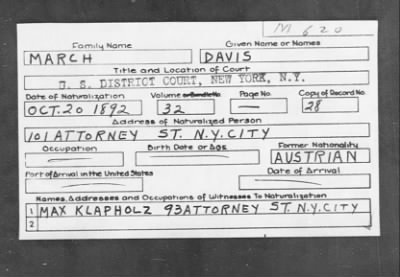 M620
Family Name Given Name or Names
MARCH DAVIS
Title and Location of Court
U. S. DISTRICT COURT, NEW YORK, N.Y.
Date of Naturalization Volume or Bundle No. Page No. Copy of Record No.
OCT. 20 1892 32 — 28
Address of Naturalized Person
101 ATTORNEY ST. N.Y. CITY
Occupation Birth Date or Age Former Nationality
— — AUSTRIAN
Port of Arrival in the United States Date of Arrival
— —
Names, Addresses and Occupations of Witnesses To Naturalization
1 MAX KLAPHOLZ 93 ATTORNEY ST. N.Y. CITY
2